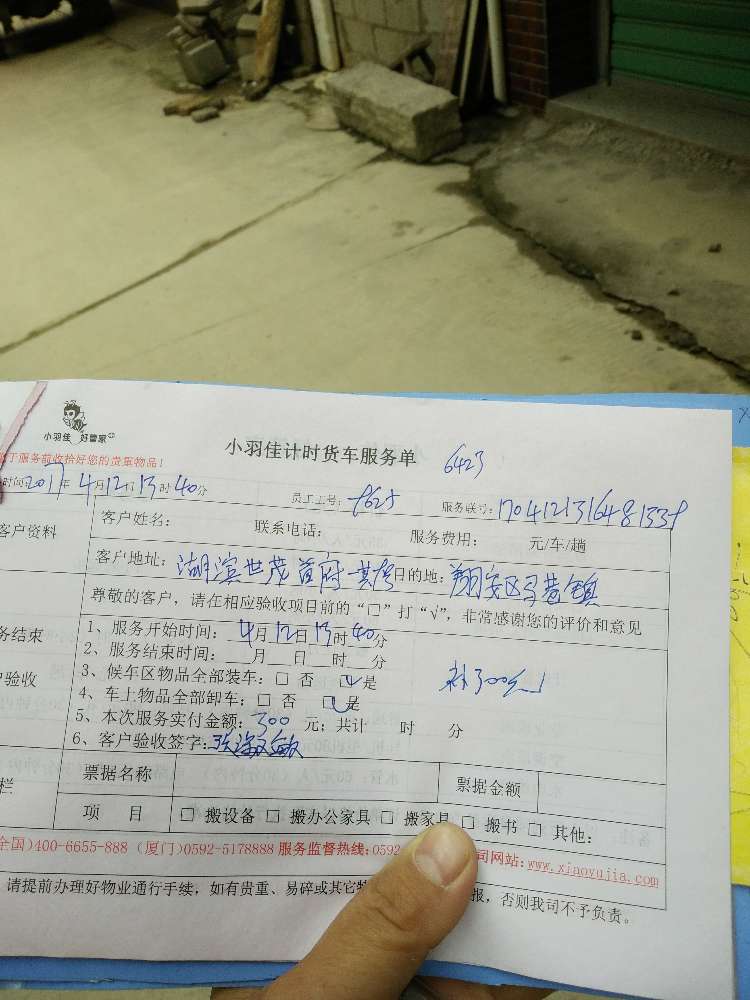 小羽佳 好管家
小羽佳计时货车服务单 6423
于服务前收拾好您的贵重物品！
时间:2017年4月12日13时40分 员工工号: 服务联号:
客户资料
客户姓名: 联系电话: 服务费用: 元/车/趟
客户地址:湖滨世茂首府 目的地:翔安区马巷镇
尊敬的客户，请在相应验收项目前的“□”打“√”，非常感谢您的评价和意见
务结束
户验收
1、服务开始时间: 4月12日13时40分
2、服务结束时间: __月__日__时__分
3、候车区物品全部装车: □ 否 ☑ 是 补300元
4、车上物品全部卸车: □ 否 ☑ 是
5、本次服务实付金额: 300 元; 共计 时 分
6、客户验收签字:
栏
票据名称 票据金额
项 目 □ 搬设备 □ 搬办公家具 □ 搬家具 □ 搬书 □ 其他:
全国)400-6655-888 (厦门)0592-5178888 服务监督热线:0592- 司网站:www.xiaoyujia.com
请提前办理好物业通行手续，如有贵重、易碎或其它特 报，否则我司不予负责。